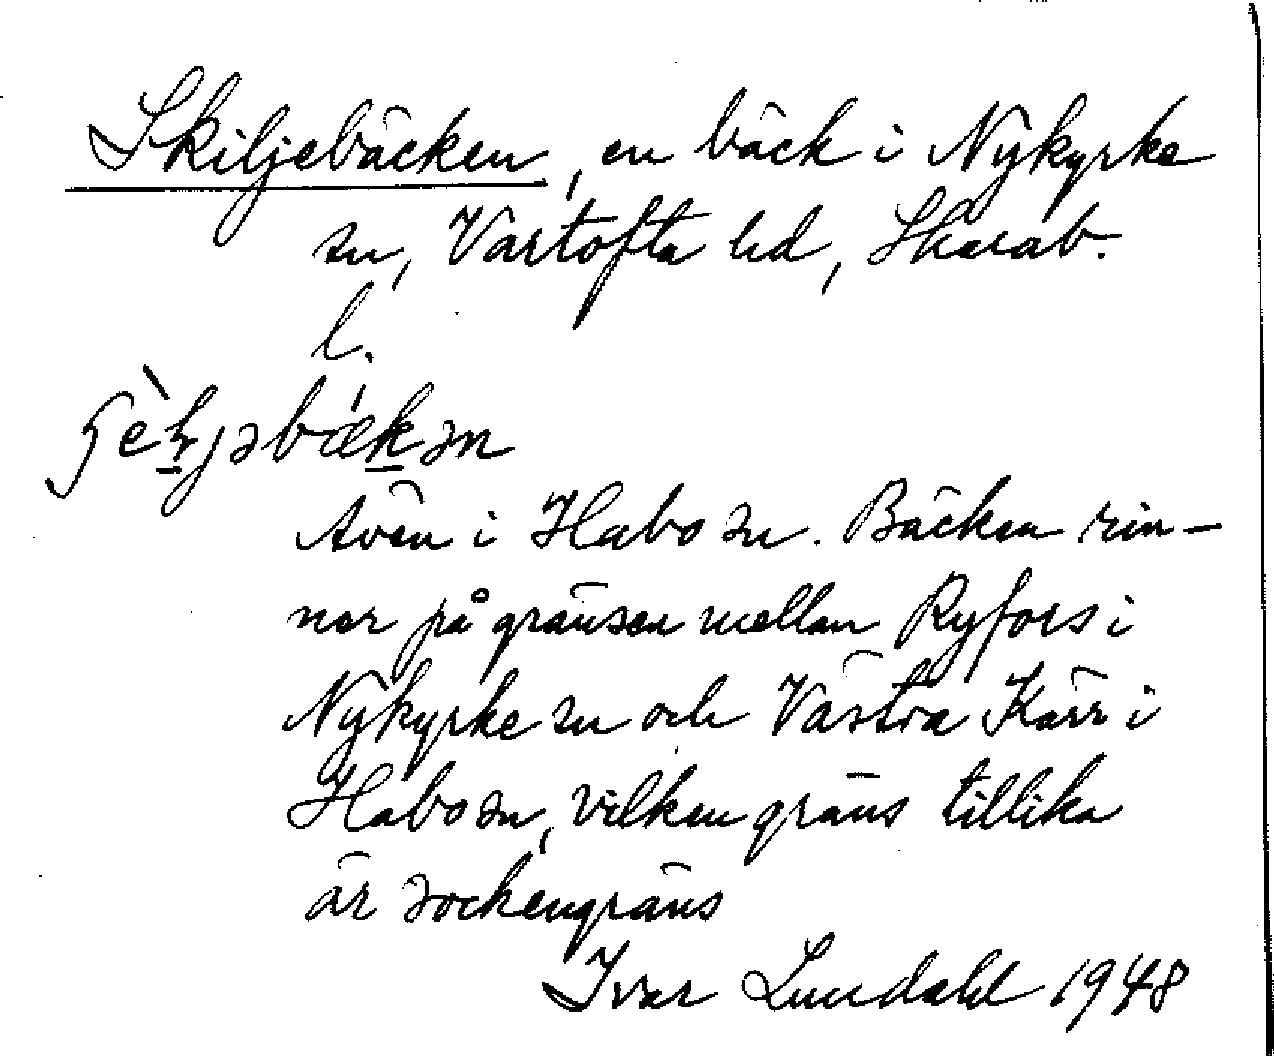 Skiljebäcken, en bäck i Nykyrke
sn, Vartofta hd, Skarab.
l.
Även i Habo sn. Bäcken rin-
ner på gränsen mellan Ryfors i
Nykyrke sn och Västra Kärr i
Habo sn, vilken gräns tillika
är sockengräns
Ivar Lundahl 1948